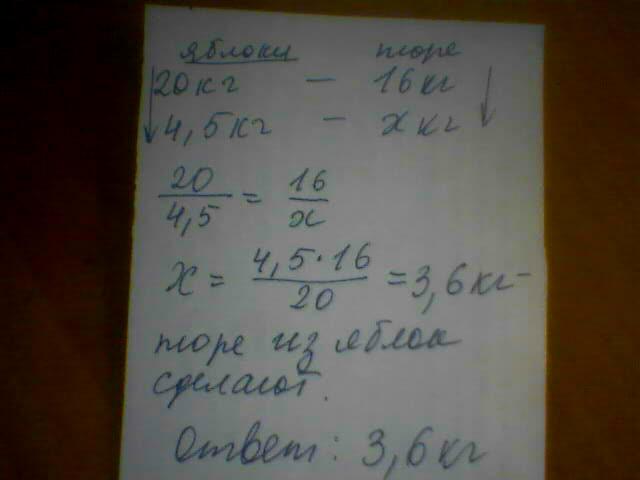 яблоки пюре
20кг - 16кг
4,5кг - xкг
20/4,5 = 16/x
x = 4,5·16/20 = 3,6кг-
пюре из яблок
сделают.
Ответ: 3,6кг